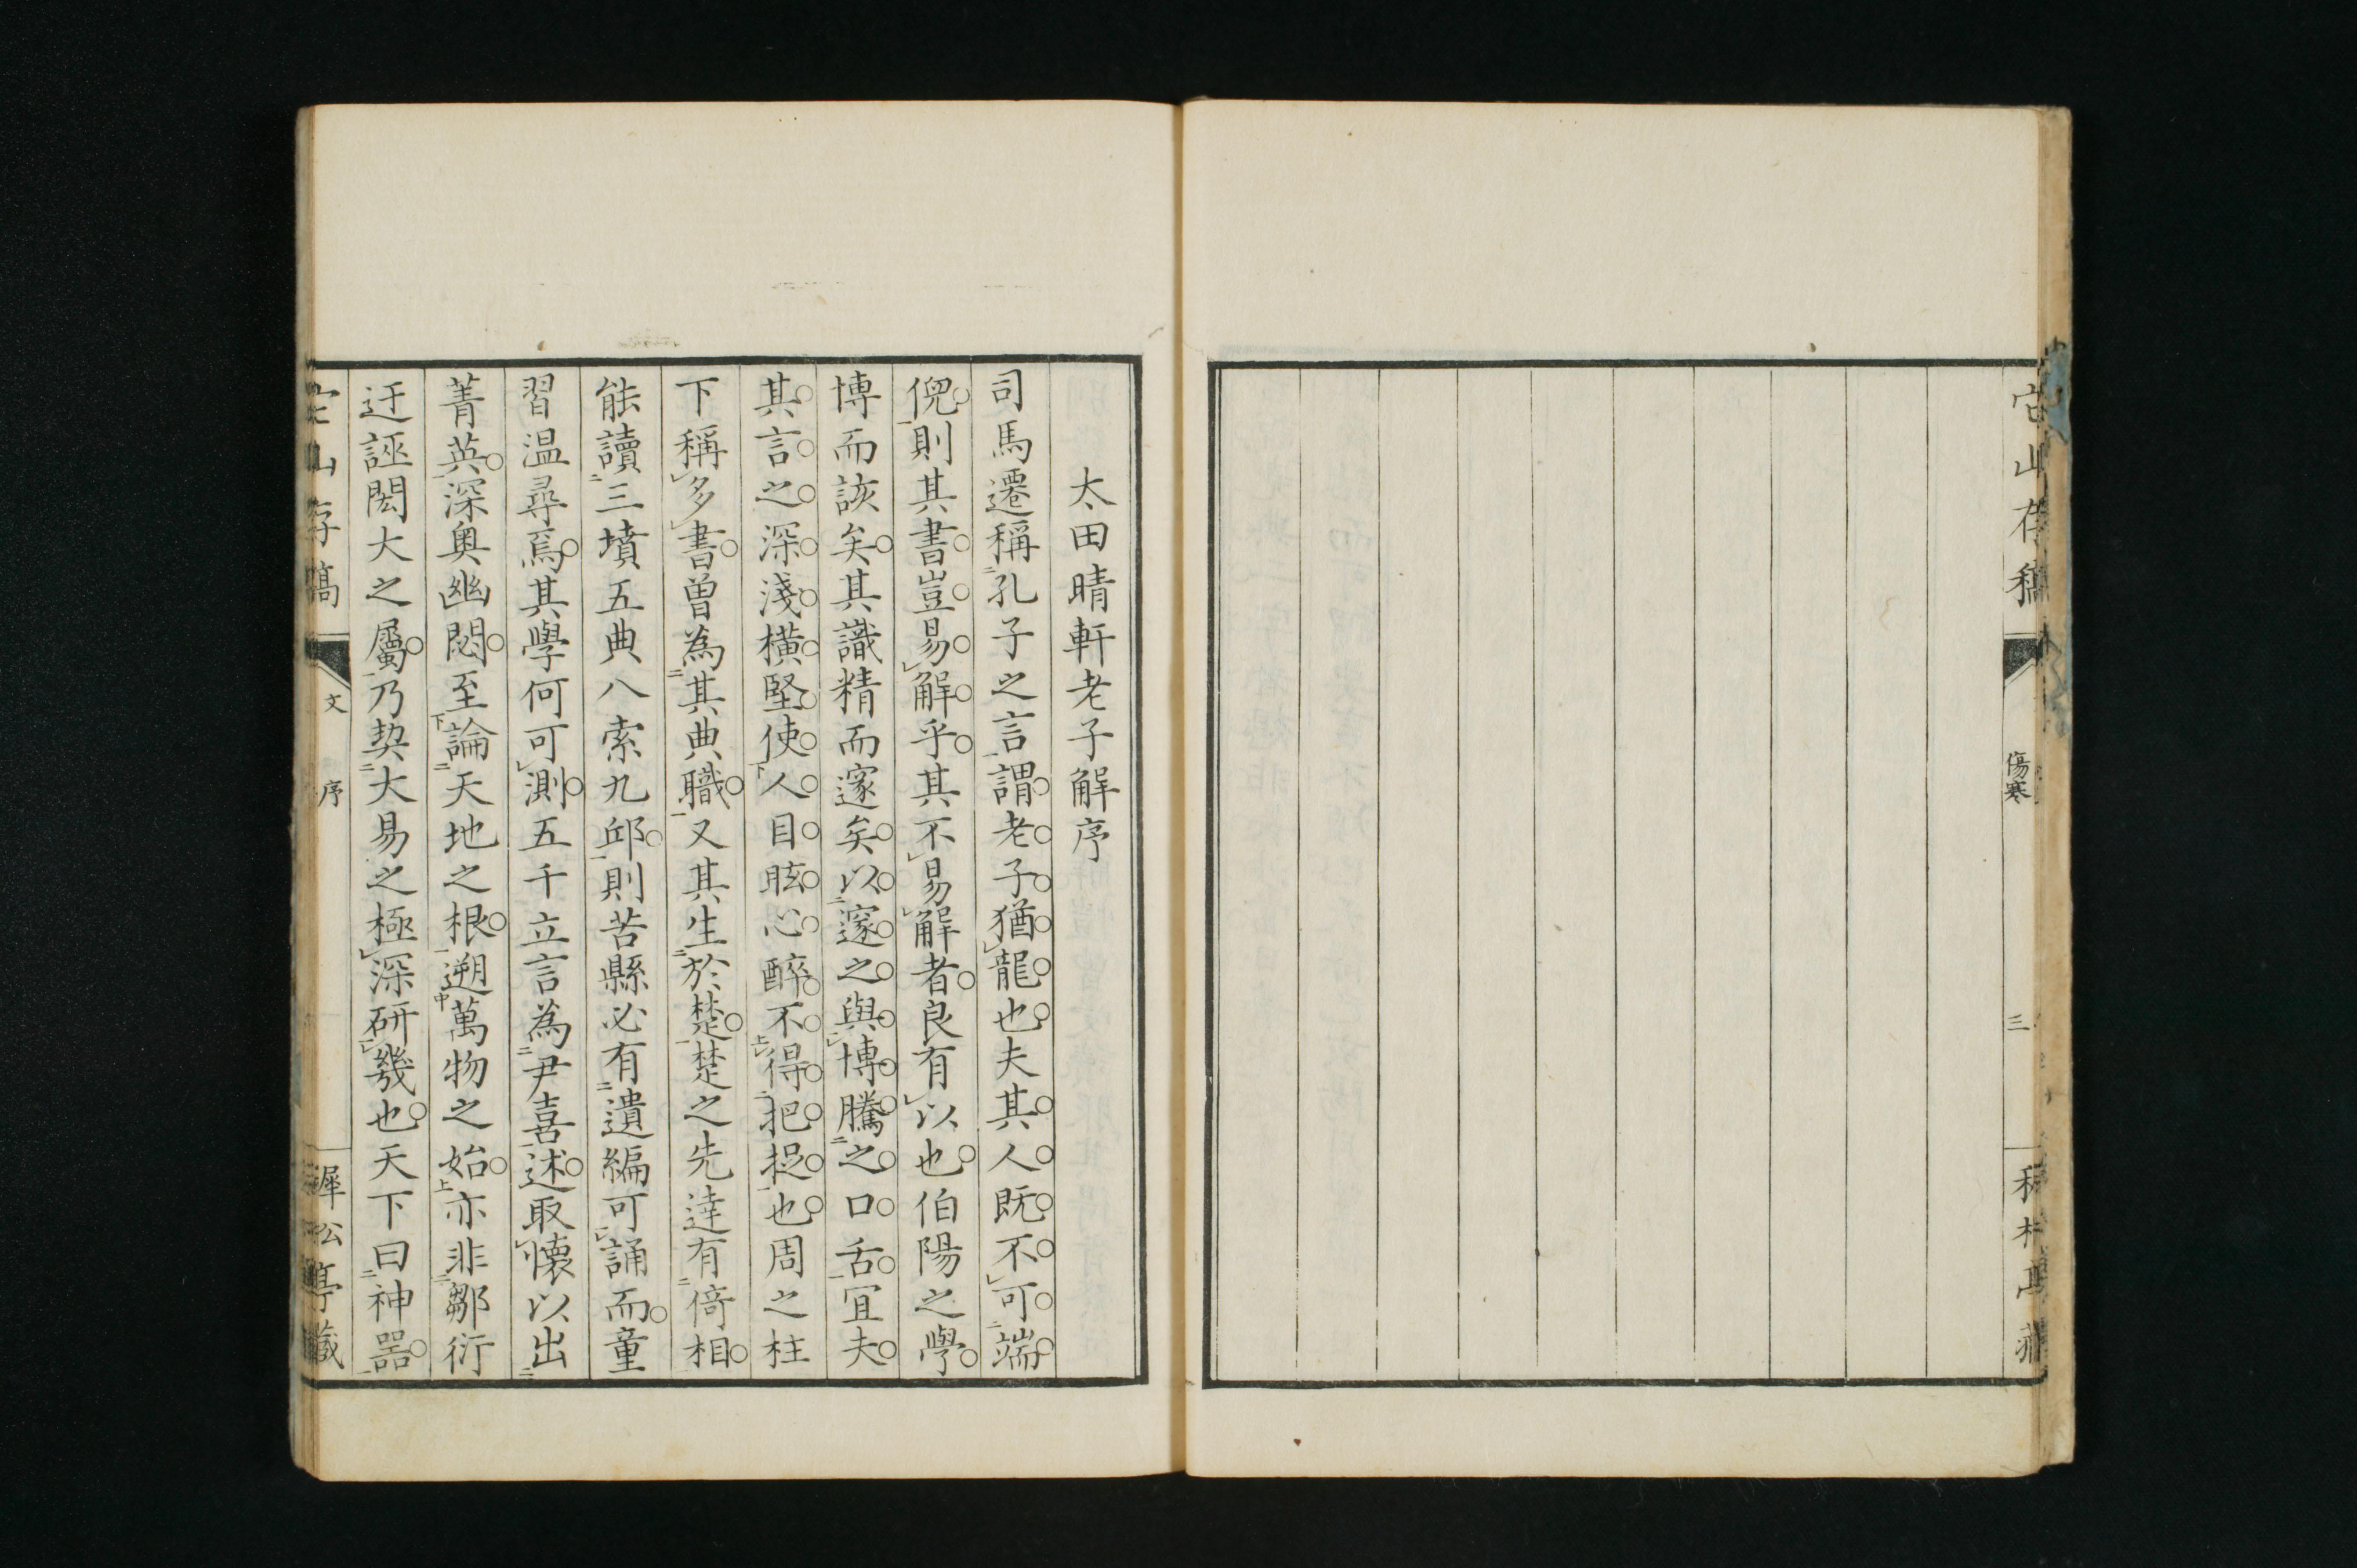 傷寒
三
太田晴軒老子解序
司馬遷稱孔子之言謂老子猶龍也夫其人既不可端
倪則其書豈易解乎其不易解者良有以也伯陽之學
博而該矣其識精而邃矣以邃之與博騰之口舌宜夫
其言之深淺橫堅使人目眩心醉不得把捉也周之柱
下稱多書曽為其典職又其生於楚楚之先達有倚相
能讀三墳五典八索九邱則苦縣必有遺編可誦而童
習温尋焉其學何可測五千立言為尹喜述取懐以出
菁英深奧幽閟至論天地之根遡萬物之始亦非鄒衍
迂誣閎大之屬乃契大易之極深研幾也天下曰神器
山存稿
文
序
犀公亭藏